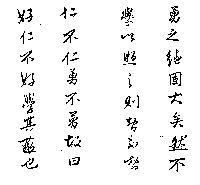 勇之德固大矣然不
學以照之則智不智
仁不仁勇不勇故曰
好仁不好學其蔽也